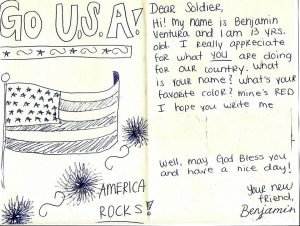 GO U.S.A!
AMERICA
ROCKS!
Dear Soldier,
Hi! my name is Benjamin
Ventura and I am 13 yrs.
old. I really appreciate
for what you are doing
for our country. What
is your name? what's your
favorite color? mine's RED
I hope you write me
Well, may God Bless you
and have a nice day!
Your new
friend,
Benjamin